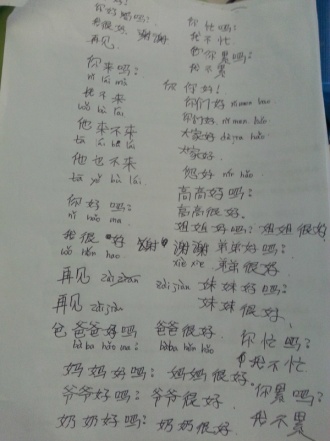 你好吗?
我很好. 谢谢
再见
你来吗?
nǐ lái mɑ
我不来
wǒ bù lái
他来不来
tā lái bù lái
他也不来
tā yě bù lái
你好吗?
nǐ hǎo ma
我很好 谢谢 谢谢
wǒ hěn hao xiè xie
再见 zài jiàn zài jiàn
再见 zài jiàn
爸爸好吗 爸爸很好
bà ba hǎo ma: bàba hěn hǎo
妈妈好吗: 妈妈很好
爷爷好吗: 爷爷很好
奶奶好吗: 奶奶很好
你忙吗:
我不忙
你累吗:
我不累
你好!
你们好 nǐ men hao
你们好 nǐ men hǎo
大家好 dà jia hǎo
大家好.
您好 nín hǎo
高高好吗:
高高很好.
姐姐好吗: 姐姐很好
弟弟好吗:
弟弟很好.
妹妹好吗:
妹妹很好.
你忙吗:
我不忙
你累吗:
我不累